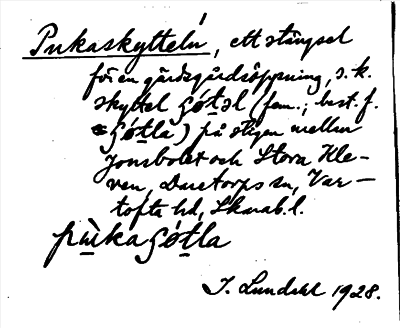 Pukaskytteln, ett stängsel
för en gärdsgårdsöppning, s.k.
skyttel gó̱tə̱l (fem.; best. f.
gó̱tla) på stigen mellan
Jonsbolet och Stora Kle-
ven, Daretorps sn, Var-
tofta hd, Skarab. l.
pù̱ka gó̱tla
J. Lundahl 1928.